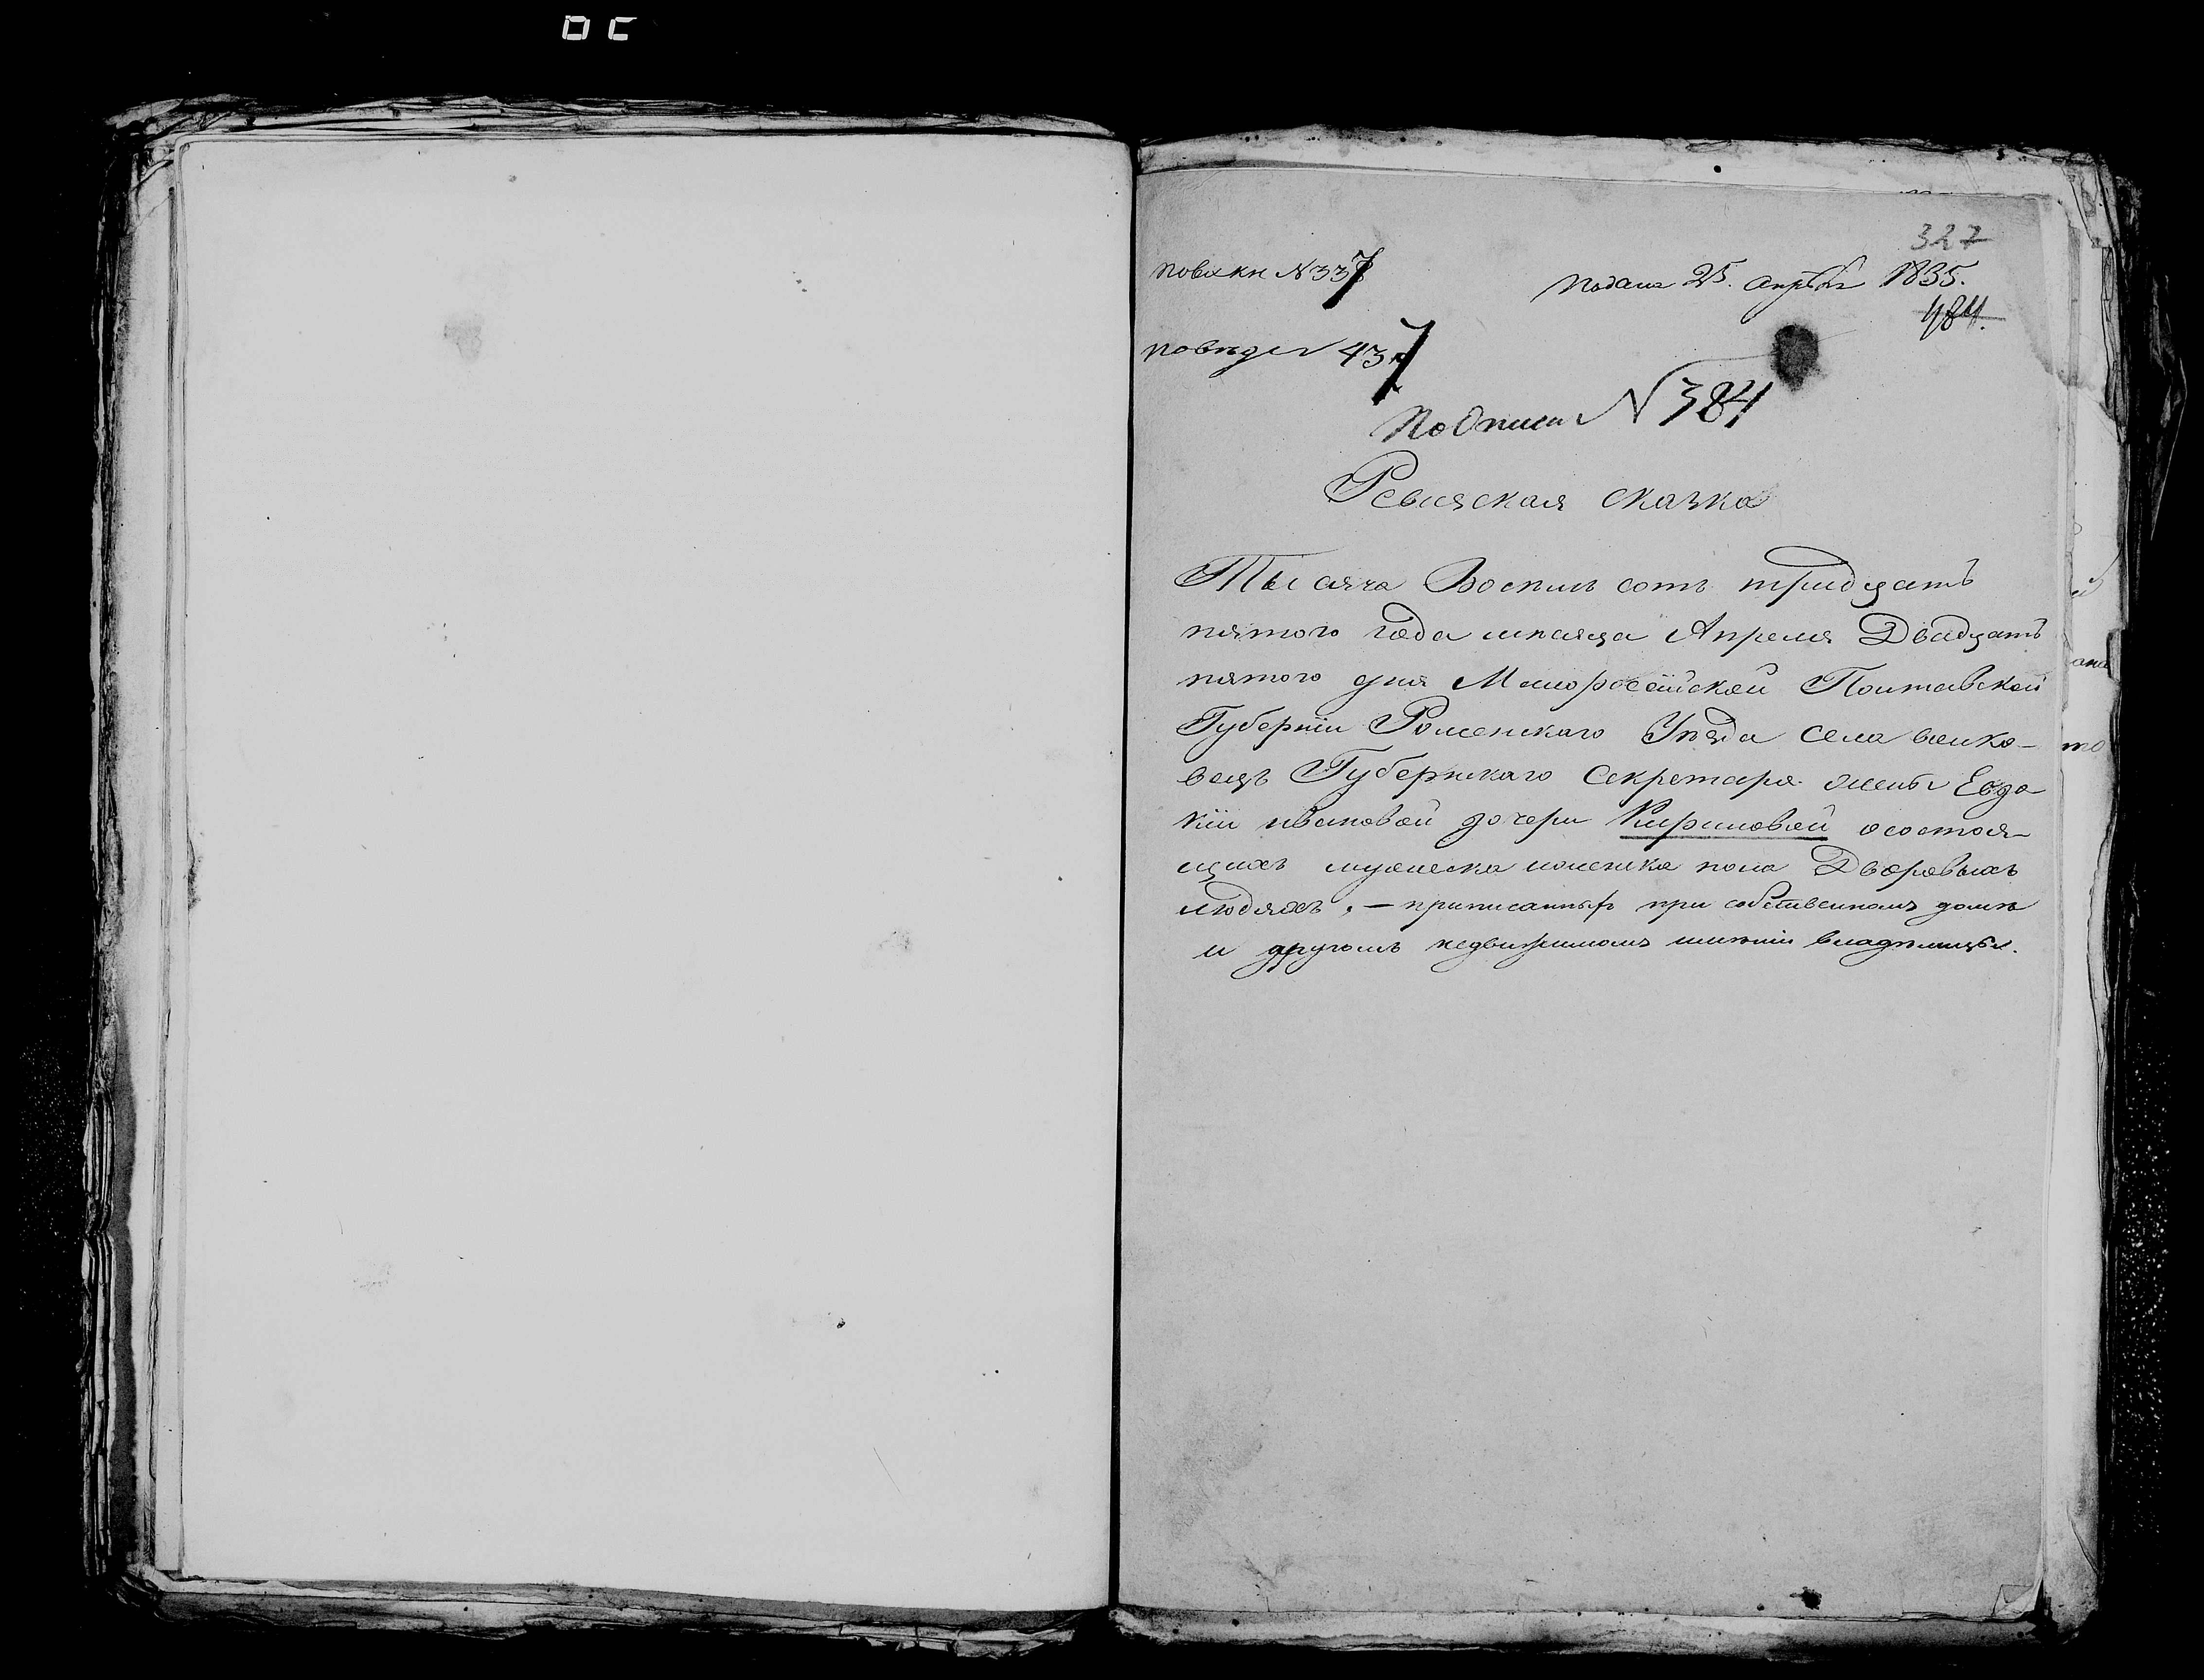 327
по вх кн N 337
подана 25. Апрѣля 1835.
484.
по вѣд N 437
По Описи N 384
Ревизская сказка
Тысяча Восимь сотъ тридцать
пятого года мѣсяца Апреля Двадцать
пятого дня Малоросссійской Полтавской
Губерніи Роменскаго Уѣзда села
вецъ Губернскаго Секретаря жены Евдо
кіи ивановой дочери Кириловой осостоя-
щихъ мужеска иженска пола Дворовыхъ
людяхъ, — приписанныхъ при собственномъ домѣ
и другомъ недвижимомъ имѣніи владѣлицы.